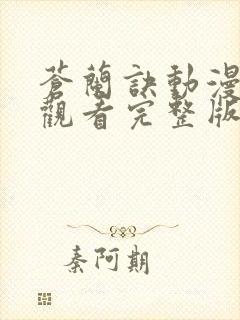 蒼蘭訣動漫
觀看完整版
秦阿期